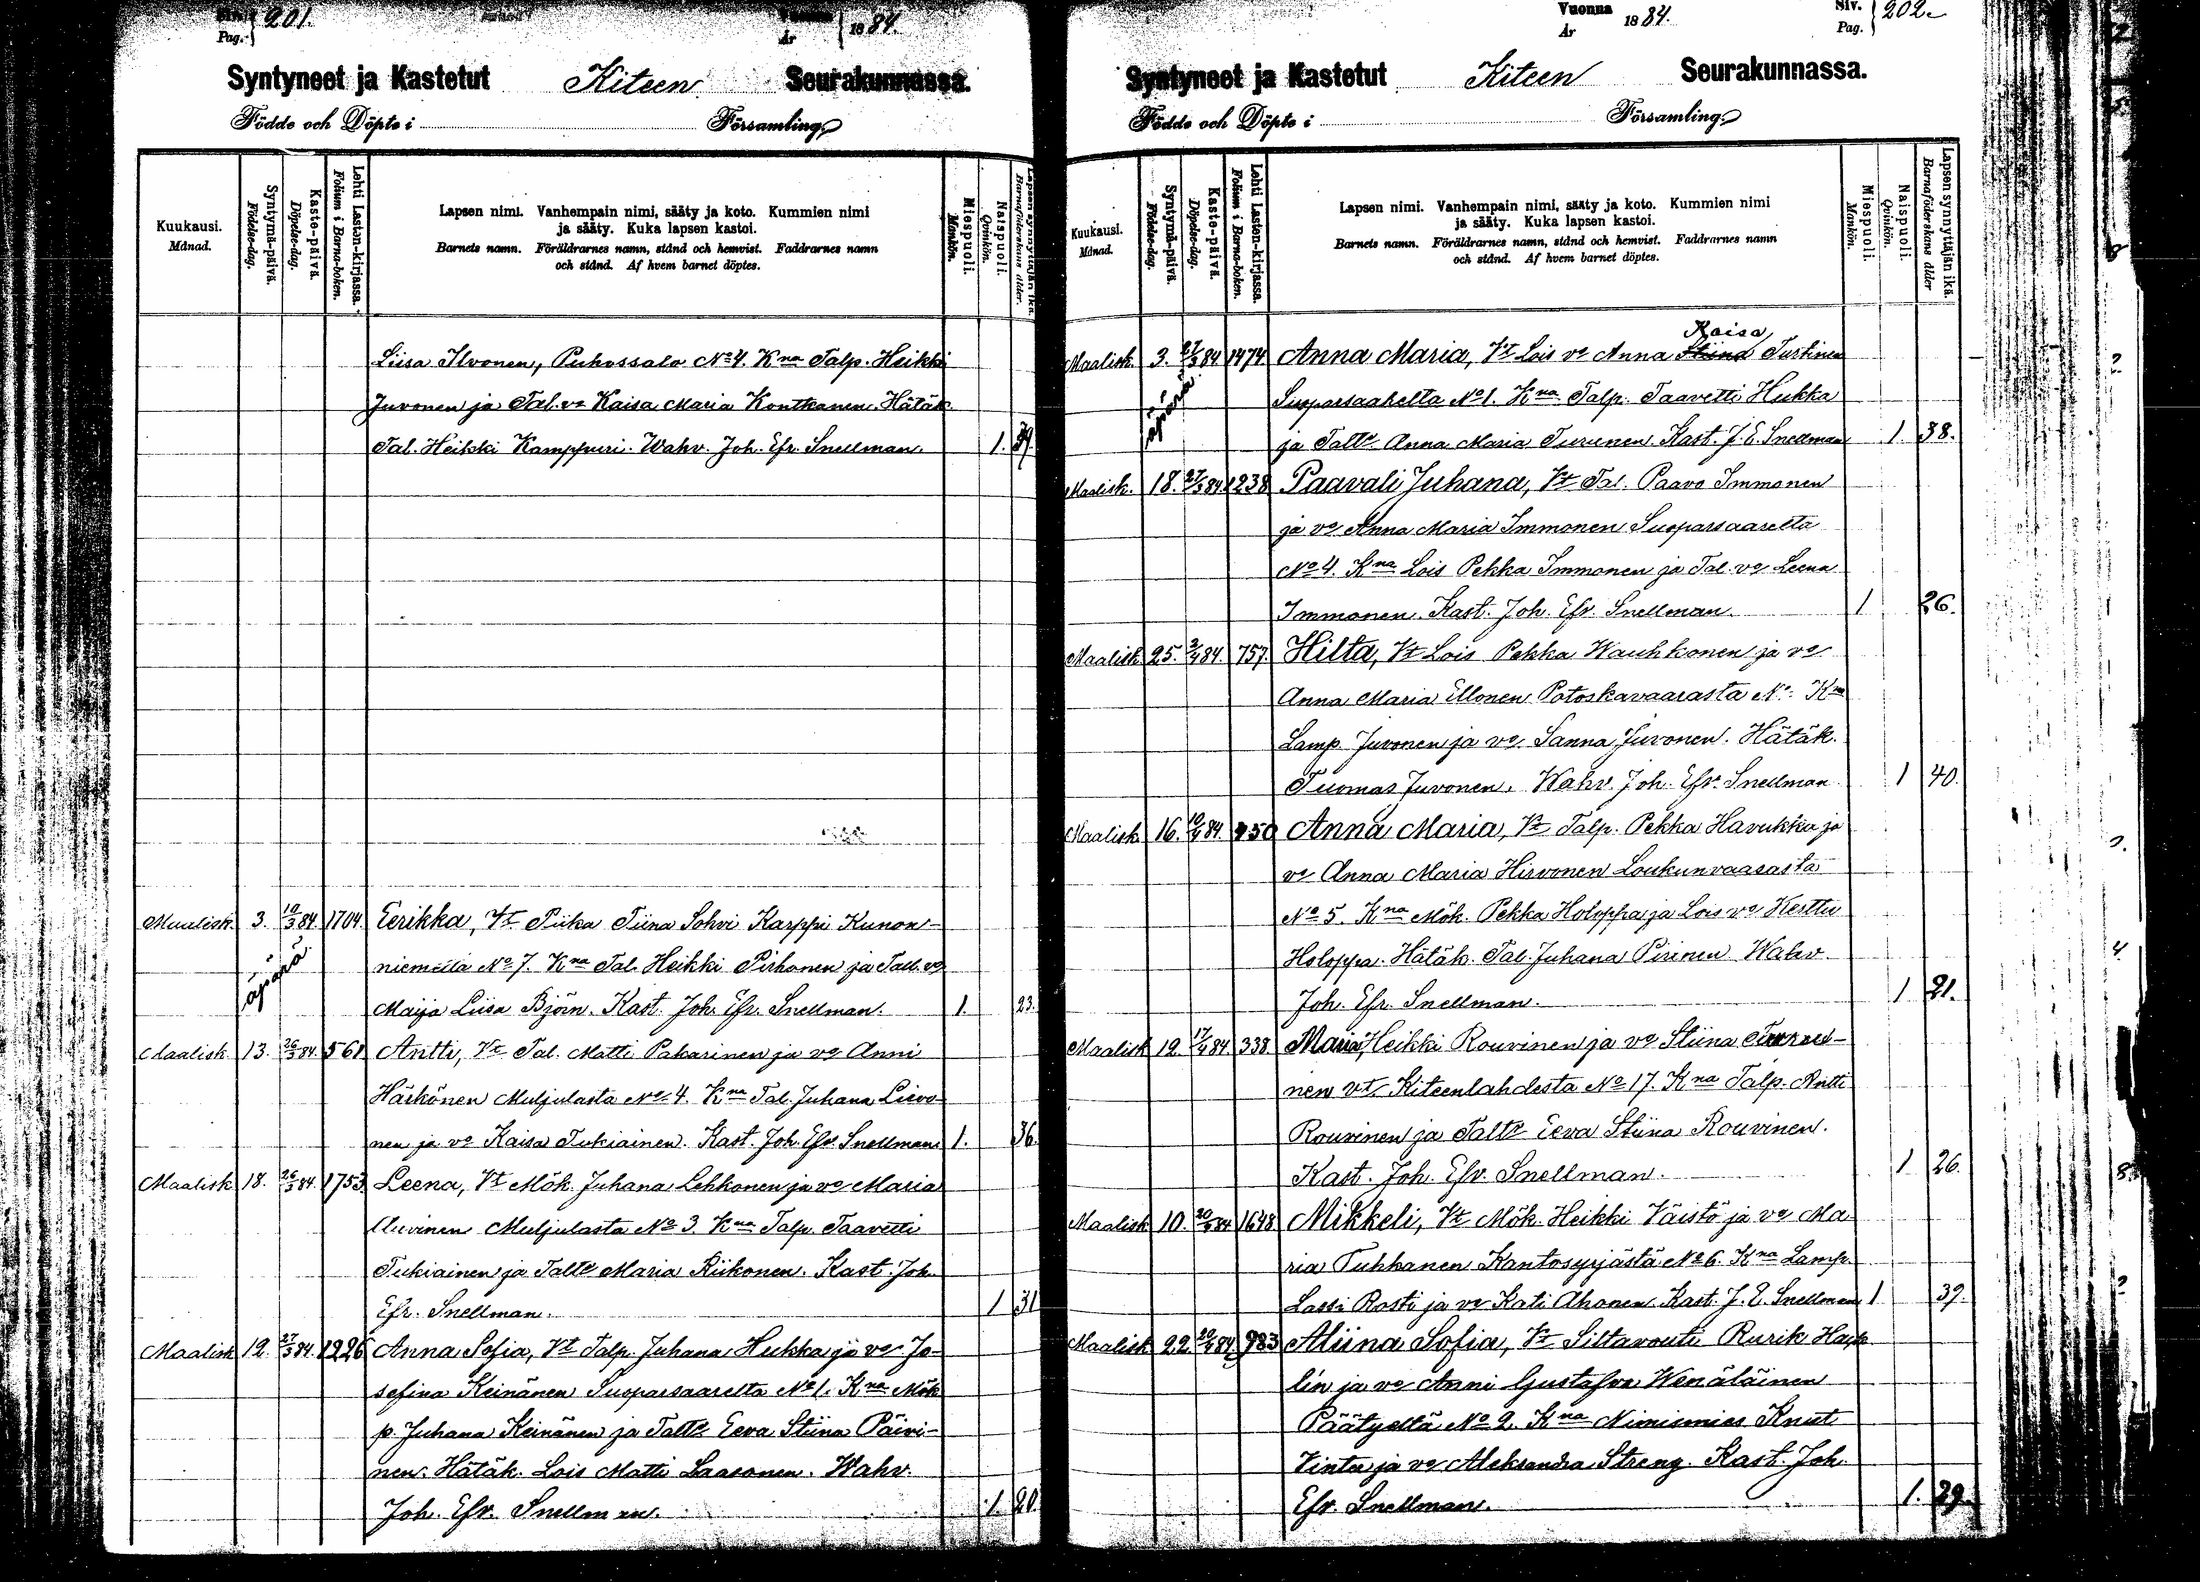 Siv. Pag. 201. Vuonna År 1884.
Syntyneet ja Kastetut Kiteen Seurakunnassa.
Födde och Döpte i Församling.
Kuukausi. Månad.
Syntymä-päivä. Födelse-dag.
Kaste-päivä. Döpelse-dag.
Lehti Lasten-kirjassa. Folium i Barna-boken.
Lapsen nimi. Vanhempain nimi, sääty ja koto. Kummien nimi
ja sääty. Kuka lapsen kastoi.
Barnets namn. Föräldrarnes namn, stånd och hemvist. Faddrarnes namn
och stånd. Af hvem barnet döptes.
Miespuoli. Mankön.
Naispuoli. Qvinkön.
Lapsen synnyttäjän ikä. Barnaföderskans ålder.
Liisa Ilvonen, Puhossalo No 4. Kna Talp. Heikki
Juvonen ja Tal. vo Kaisa Maria Kontkanen. Hätäk.
Tal. Heikki Kamppuri. Wahv. Joh. Efr. Snellman. 1.
Maalisk. 3. 10/3 84. 1704. Eerikka, Vt Piika Tiina Sohvi Karppi Kunon-
niemeltä No 7. Kna Tal. Heikki Pirhonen ja Tall. vo
äpärä
Maija Liisa Björn. Kast. Joh. Efr. Snellman. 1. 23.
Maalisk. 13. 26/3 84. 561 Antti, Vt Tal. Matti Pakarinen ja vo Anni
Härkönen Muljulasta No 4. Kna Tal. Juhana Lievo-
nen ja vo Kaisa Tukiainen. Kast. Joh. Efr. Snellman 1. 36.
Maalisk. 18. 26/3 84. 1753 Leena, Vt Mök. Juhana Lehkonen ja vo Maria
Auvinen Muljulasta No 3. Kna Talp. Taavetti
Tukiainen ja Taltr Maria Riikonen. Kast. Joh.
Efr. Snellman. 1 31
Maalisk. 12. 27/3 84. 1226 Anna Sofia, Vt Talp. Juhana Hukka ja vo Jo-
sefina Keinänen Suoparsaarelta No 1. Kna Mök
p. Juhana Keinänen ja Taltr Eeva Stiina Päivi-
nen. Hätäk. Lois Matti Laasonen. Wahv.
Joh. Efr. Snellman. 1. 20.
Vuonna År 1884. Siv. Pag. 202.
Syntyneet ja Kastetut Kiteen Seurakunnassa.
Födde och Döpte i Församling.
Kuukausi. Månad.
Syntymä-päivä. Födelse-dag.
Kaste-päivä. Döpelse-dag.
Lehti Lasten-kirjassa. Folium i Barna-boken.
Lapsen nimi. Vanhempain nimi, sääty ja koto. Kummien nimi
ja sääty. Kuka lapsen kastoi.
Barnets namn. Föräldrarnes namn, stånd och hemvist. Faddrarnes namn
och stånd. Af hvem barnet döptes.
Miespuoli. Mankön.
Naispuoli. Qvinkön.
Lapsen synnyttäjän ikä. Barnaföderskans ålder
Kaisa
Maalisk. 3. 27/3 84 1474 Anna Maria, Vt Lois vo Anna Stiina Turtinen
Suoparsaarelta No 1. Kna Talp. Taavetti Hukka
äpärä
ja Taltr Anna Maria Turunen. Kast. J. E. Snellman 1 38.
Maalisk. 18. 27/3 84 1238 Paavali Juhana, Vt Tal. Paavo Immonen
ja vo Anna Maria Immonen Suoparsaarelta
No 4. Kna Lois Pekka Immonen ja Tal. vo Leena
Immonen. Kast. Joh. Efr. Snellman. 1 26.
Maalisk 25. 2/4 84. 757. Hilta, Vt Lois Pekka Wauhkonen ja vo
Anna Maria Ellonen Potoskavaarasta No Kna
Lamp. Juvonen ja vo Sanna Juvonen. Hätäk.
Tuomas Juvonen. Wahv. Joh. Efr. Snellman 1 40.
Maalisk 16. 10/4 84. 450 Anna Maria, Vt Talp. Pekka Havukka ja
vo Anna Maria Hirvonen Loukunvaarasta
No 5. Kna Mök. Pekka Holoppa ja Lois vo Kerttu
Holoppa. Hätäk. Tal. Juhana Pirinen Wahv.
Joh. Efr. Snellman. 1 21.
Maalisk 12. 17/4 84. 338. Maria, Heikki Rouvinen ja vo Stiina Turu-
nen vt Kiteenlahdesta No 17. Kna Talp. Antti
Rouvinen ja Taltr Eeva Stiina Rouvinen.
Kast. Joh. Efr. Snellman. 1 26.
Maalisk 10. 20/4 84 1648 Mikkeli, Vt Mök. Heikki Väistö ja vo Ma-
ria Tuhkanen Kantosyrjästä No 6. Kna Lamp.
Lassi Rosti ja vo Kati Ahonen. Kast. J. E. Snellman 1 39.
Maalisk 22 20/4 84. 983 Aliina Sofia, Vt Siltavouti Rurik Hag-
lin ja vo Anni Gustafva Wenäläinen
Päätyeltä No 2. Kna Nimismies Knut
Vinter ja vo Aleksandra Streng. Kast. Joh.
Efr. Snellman. 1. 29.